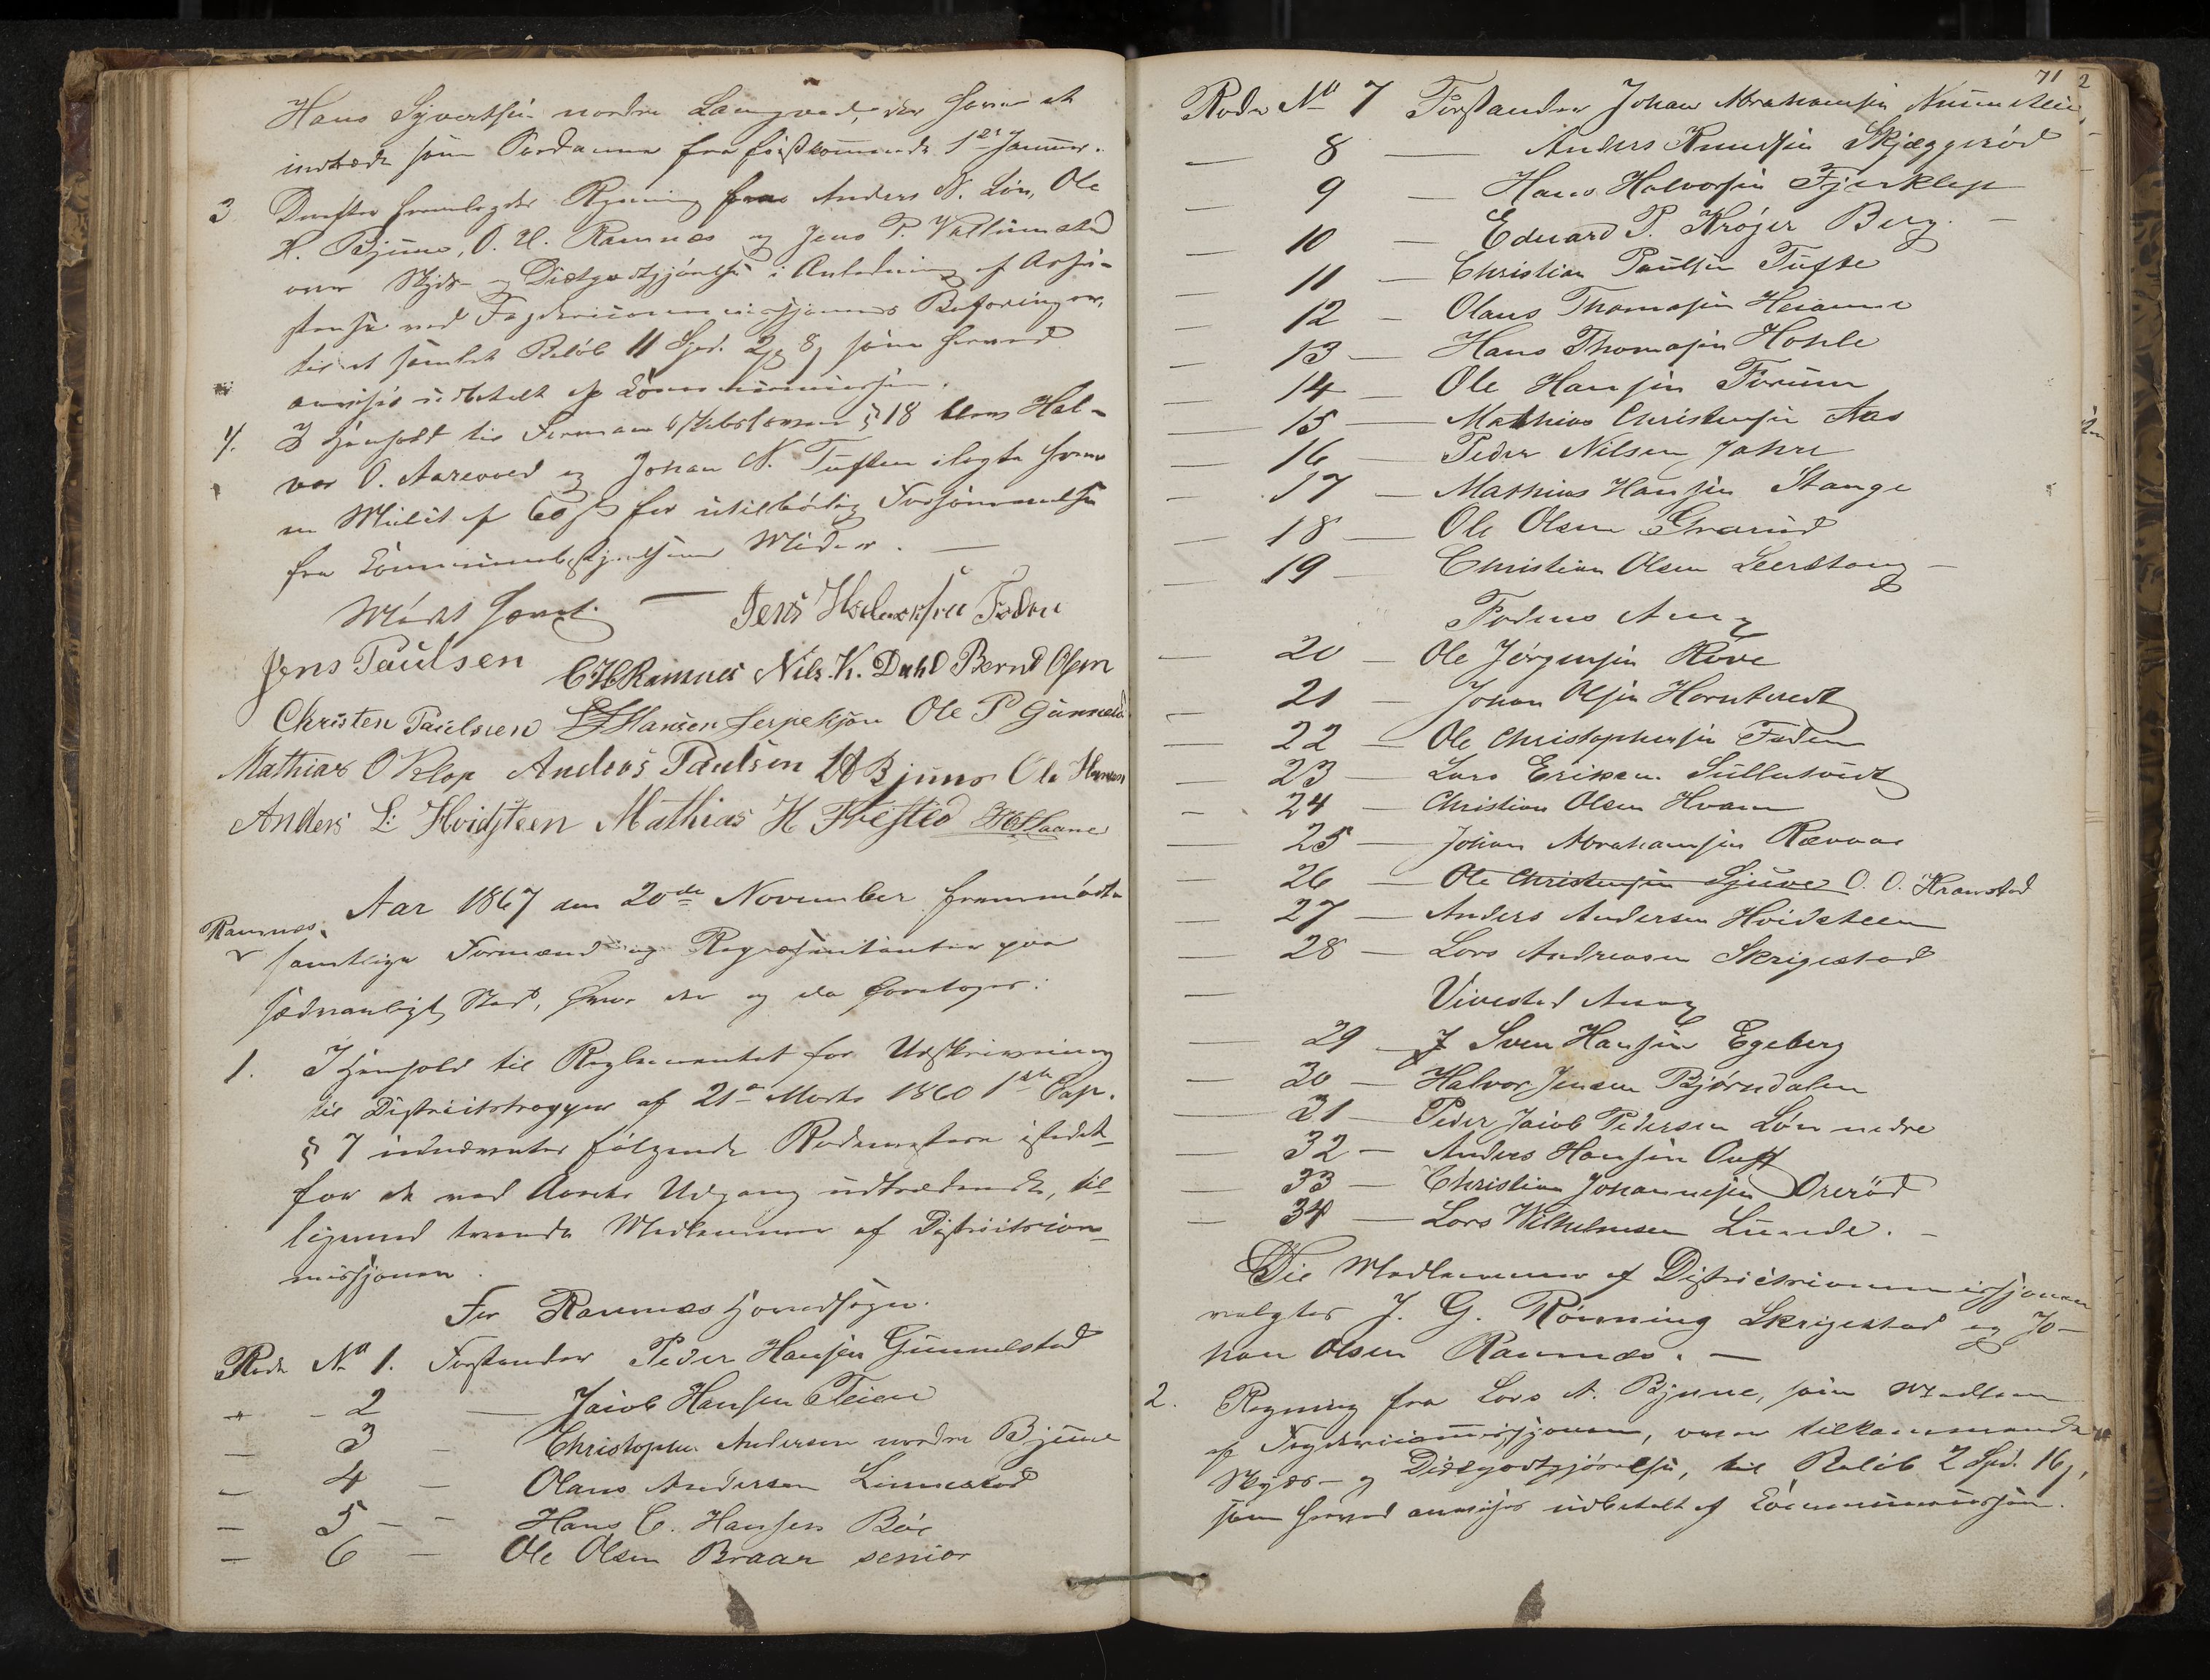 Hans Syvertsen nordre Langved, der haver at
indtræde som Ordanner fra førstkommende 1ste Januar.
3 Derefter fremlagdes Regning fra Anders N. Lön, Ole
H. Bjune, O. H. Ramnæs og Jens P. Vallumsted
over Skyds- og Diætgodtgjörelse i Anledning af Assi-
stense ved Fogdericommissjonens Befaringer,
til et samlet Belöb 11 Spd. 2 8 som herved
anvises udbetalt af Communecassen.
4. I Henhold til Formandskabslovens § 18 blev Hal-
vor O. Aarevold og Johan N. Tuften ilagte hver
en Mulct af 60 for utilbörlig Forsömmelse
fra Communebestyrelsens Möder. —
Mödet hævet. — Jens Halvorsen Foden
Jens Paulsen C. H. Ramnes Nils. K. Dahl Bernt Olsen
Christen Paulsen Hansen Jerpekjøn Ole P Gunnestad
Mathias O Klop Andreas Paulsen Bjune Ole Hansen
Anders L: Hvidsteen Mathias H Firsted
Aar 1867 den 20de November fremmödte
Ramnes.
samtlige Formænd og Repræsentanter paa
sædvanligt Sted, hvor der og da foretoges:
1. I Henhold til Reglementet for Udskrivning
til Districtstropper af 21de Marts 1860 1ste Cap.
§ 7 udnævntes følgende Rodemestere istedet-
for de ved Aarets Udgang udtrædende, til-
ligemed tvende Medlemmer af Districtscom-
missjonen.
For Ramnes Hovedsogn.
Rode No 1. Forstander Peder Hansen Gunnelstad
" - 2 — Jacob Hansen Teien
— 3 - Christopher Andersen nordre Bjune
— 4 - Olaus Andersen Linnestad
— 5 - - Hans C. Hansen Böe
— 6 - Ole Olsen Braar senior
71
2
Rode No 7 Forstander Johan Abrahamsen
— 8 — Anders Knudsen Skjæggeröd
— 9 — Hans Halvorsen Fjereklep
— 10 — Edvard P. Krøjer Berg. —
— 11 — Christian Paulsen Tufte
— 12 - Olaus Thomasen
— 13 — Hans Thomasen Hohle
— 14 — Ole Hansen Forum
— 15 — Mathias Christensen Aas
— 16 — Peder Nilsen Jahre
— 17 — Mathias Hansen Stange
— 18 — Ole Olsen
— 19 — Christian Olsen Leerstang —
Fodens Anneg
— 20 — Ole Jörgensen Röve
— 21 — Johan Olsen Horntvedt
— 22 — Ole Christophersen Foden
— 23 — Lars Eriksen Sullutvedt
— 24 — Christian Olsen Hvaem
— 25 — Johan Abrahamsen Rævaas
— 26 — Ole Christensen Gjuve O. O. Kranstad
— 27 — Anders Andersen Hvidsteen
— 28 — Lars Andreasen Skrigestad
— Vivestad Anneg
— 29 — Sven Hansen Egeberg
— 30 — Halvor Jensen Bjørndalen
— 31 — Peder Jacob Pedersen Løn nedre
— 32 — Anders Hansen
— 33 — Christian Johannesen Oreröd
— 34 — Lars Wilhelmsen Lunde. —
Til Medlemmer af Districtscommissjonen
valgtes J. G. Rönning Skrigestad og Jo-
han Olsen Ramnæs. —
2. Regning fra Lars A. Bjune, som Medlem
af Fogdericommissjonen, over tilkommende
Skyds- og Diætgodtgjörelse, til Belöb 2 Spd. 16,
som herved anvises udbetalt af Communecassen.